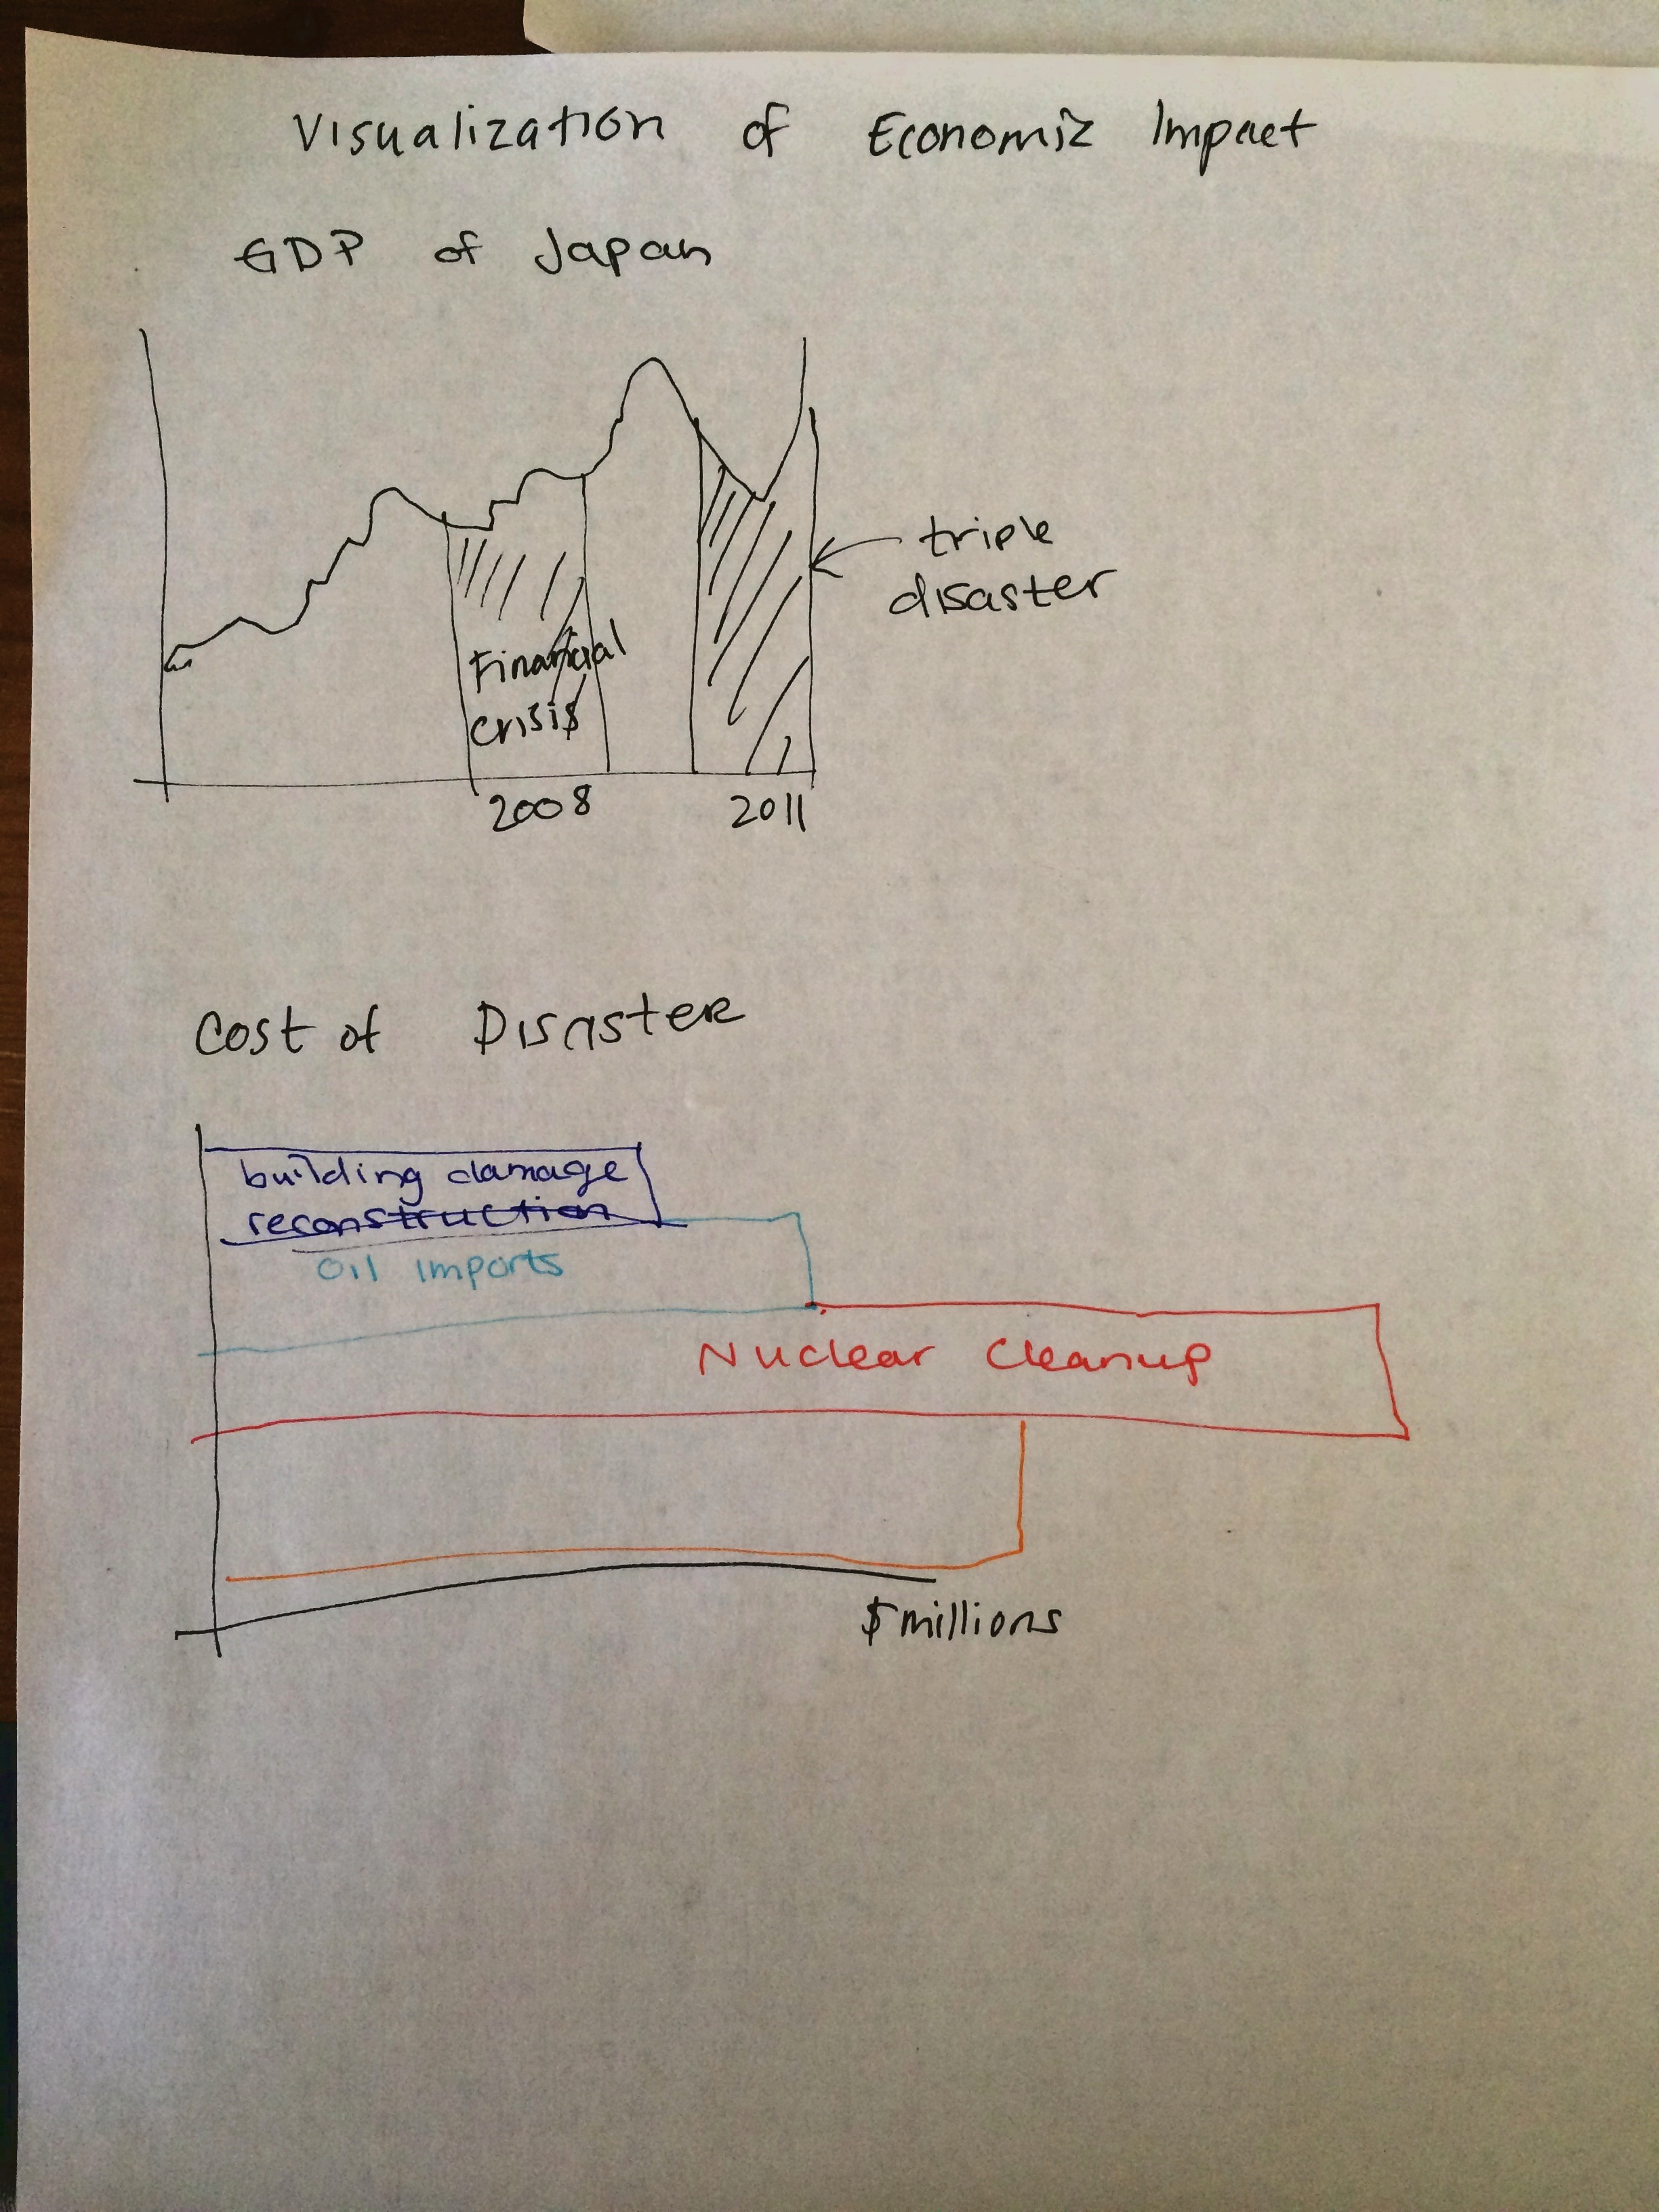 Visualization of Economic Impact
GDP of Japan
triple
disaster
Financial
crisis
2008
2011
Cost of Disaster
building damage
reconstruction
oil imports
Nuclear Cleanup
$ millions